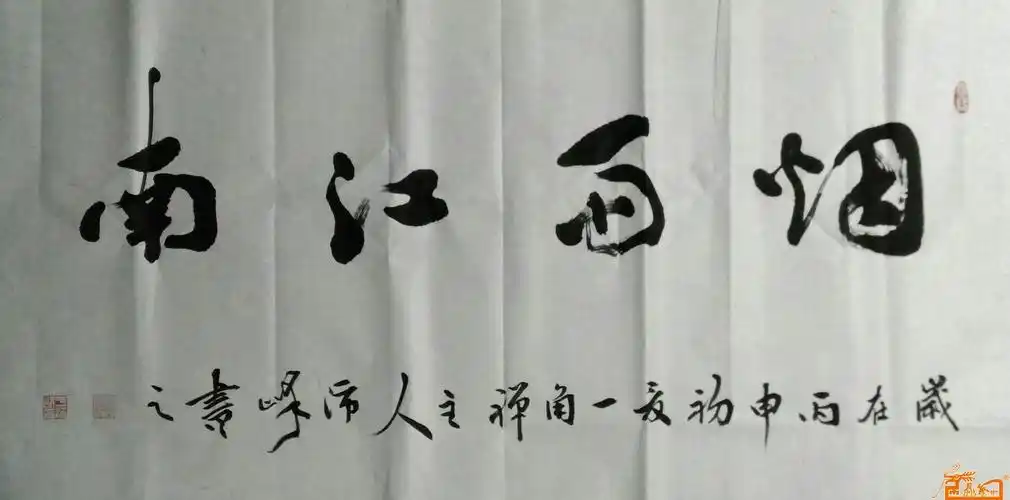 烟雨江南
歲在丙申初夏一角禅主人沛峰書之